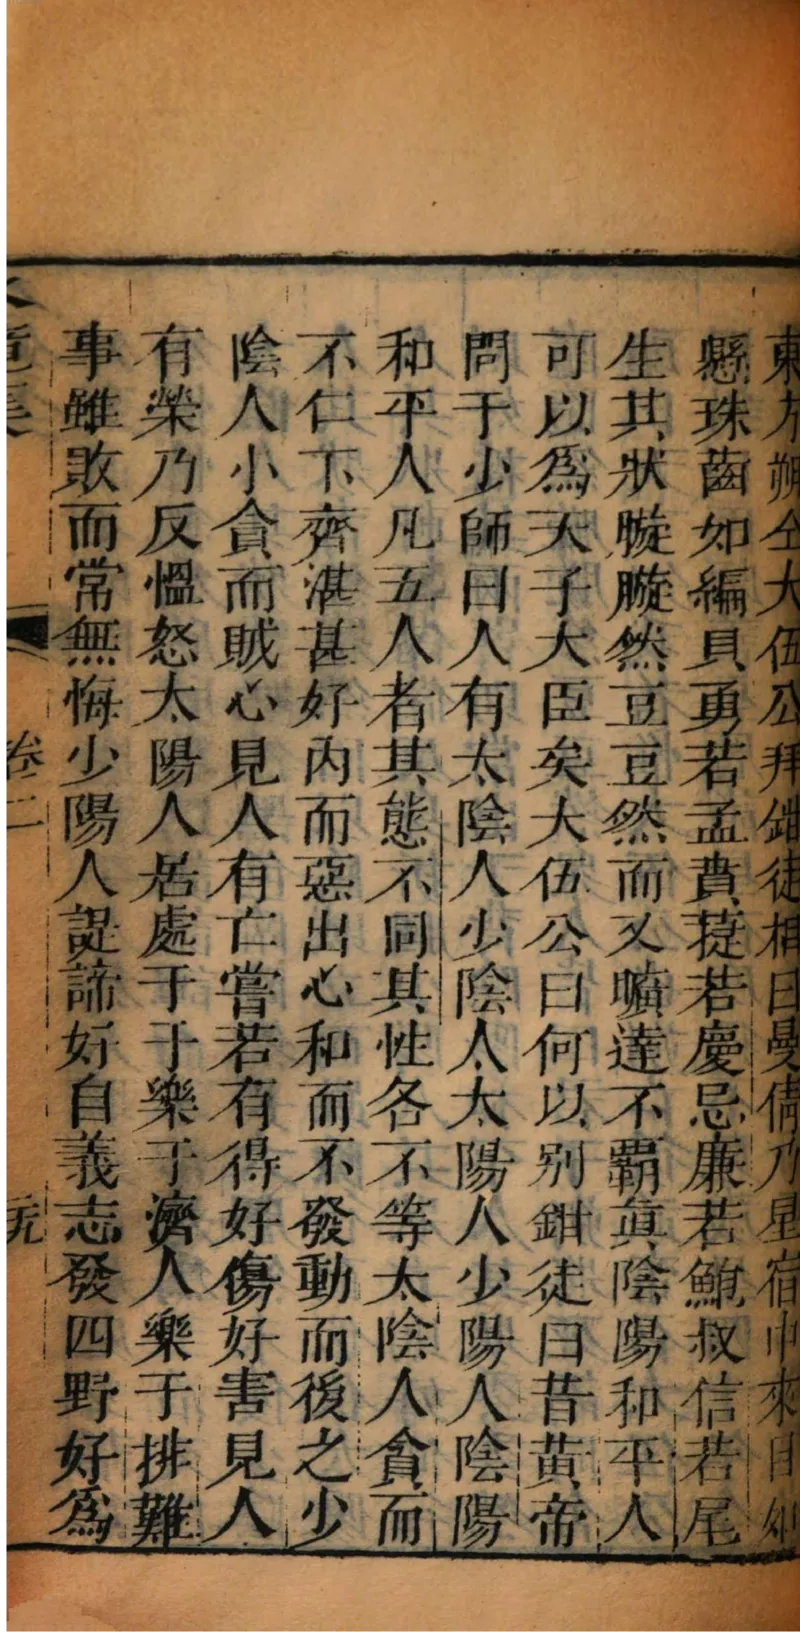 東方朔仝大伍公拜鉗徒相曰曼倩乃星宿中來目如
懸珠齒如編貝勇若孟賁捷若慶忌廉若鮑叔信若尾
生其狀䁢䁢然豆豆然而又曠達不羇眞陰陽和平人
可以爲天子大臣矣大伍公曰何以别鉗徒曰昔黄帝
問于少師曰人有太陰人少陰人太陽人少陽人陰陽
和平人凡五人者其態不同其性各不等太陰人貪而
不仁下齊湛甚好內而惡出心和而不發動而後之少
陰人小貪而賊心見人有亡嘗若有得好傷好害見人
有榮乃反慍怒太陽人居處于于樂于濟人樂于排難
事雖敗而常無悔少陽人諟諦好自義志發四野好爲
卷二